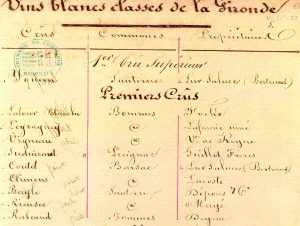 Vins blancs classés de la Gironde
Crûs Communes Propriétaires
1er Cru Supérieur
Yquem Sauternes Lur-Saluces (Bertrand)
Premiers Crûs
Latour Bommes
Peyraguey " Lafaurie aîné
Vigneau " Ve de
Suduiraut Preignac Guillot Frères
Coutet Barsac Lur-Saluces (Bertrand)
Climens " Lacoste
Bayle Sautern Dépons &
Rieussec " Maye
Rabeaud Bommes Deyme